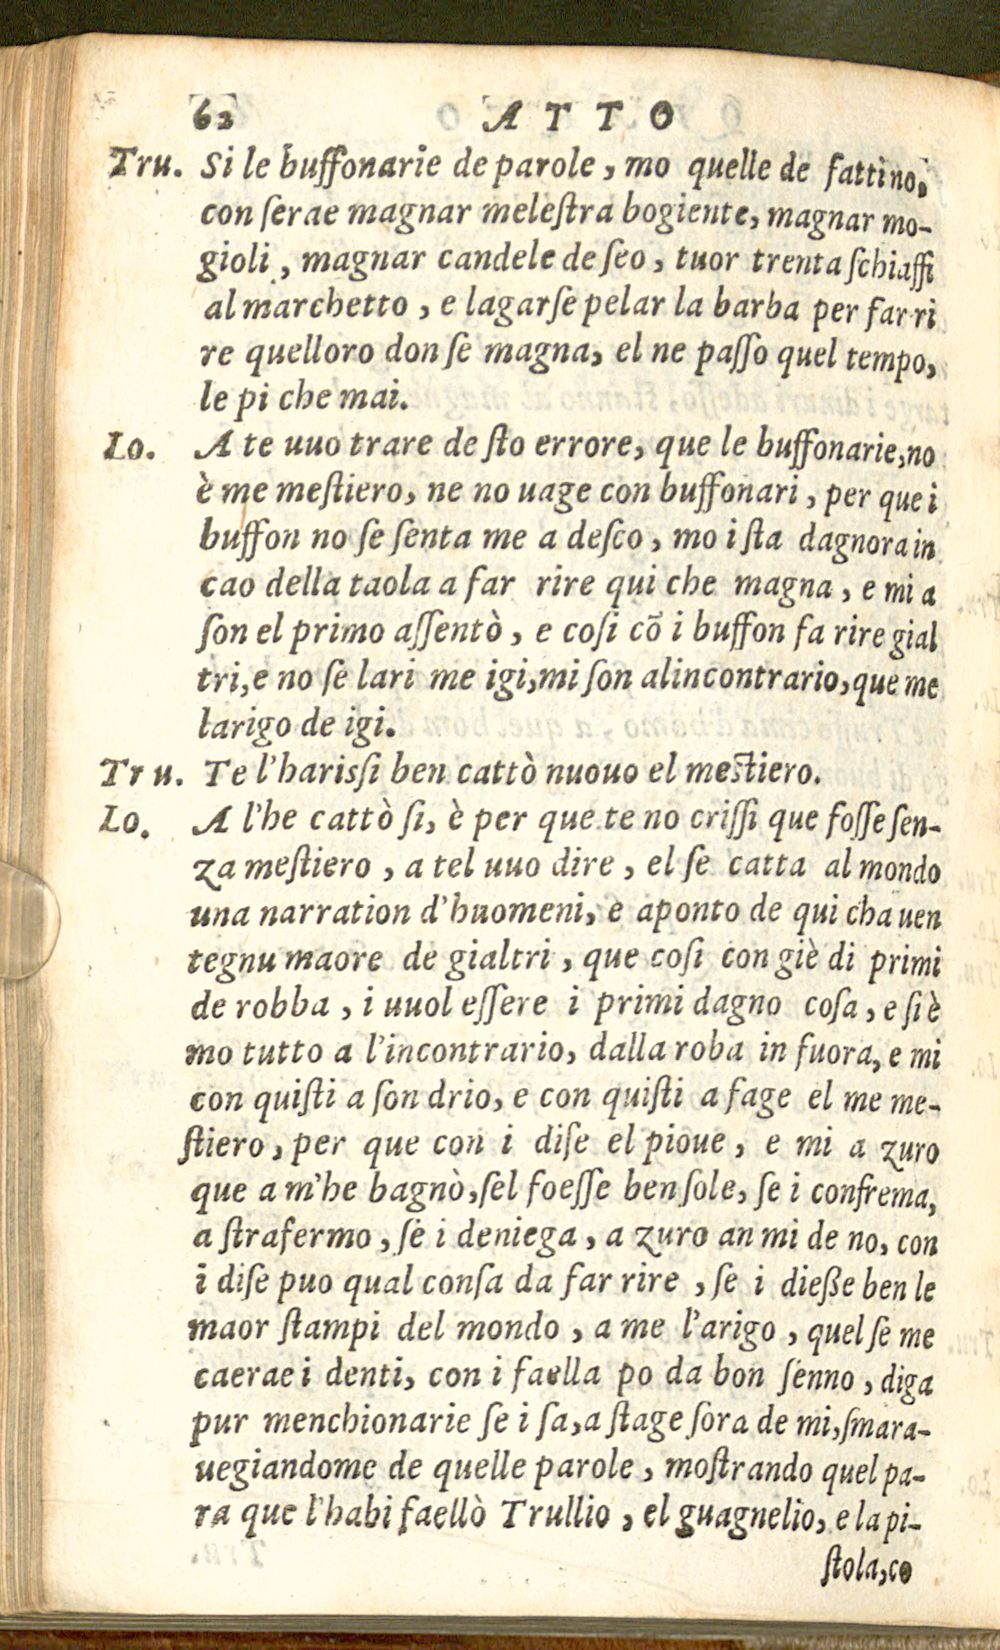 62 ATTO
Tru. Si le buffonarie de parole, mo quelle de fatti no,
con ſerae magnar meleſtra bogiente, magnar mo-
gioli, magnar candele de ſeo, tuor trenta ſchiaffi
al marchetto, e lagarſe pelar la barba per far ri
re quelloro don ſe magna, el ne paſſo quel tempo,
le pi che mai.
Lo. A te uuo trare de ſto errore, que le buffonarie, no
è me meſtiero, ne no uage con buffonari, per que i
buffon no ſe ſenta me a deſco, mo i ſta dagnora in
cao della taola a far rire qui che magna, e mi a
ſon el primo aſſentò, e coſi cõ i buffon fa rire gial
tri, e no ſe lari me igi, mi ſon alincontrario, que me
larigo de igi.
Tru. Te l'harisſi ben cattò nuouo el meſtiero.
Lo. A l'he cattò ſi, è per que te no criſſi que foſſe ſen-
za meſtiero, a tel uuo dire, el ſe catta al mondo
una narration d'huomeni, e aponto de qui cha uen
tegnu maore de gialtri, que coſi con giè di primi
de robba, i uuol eſſere i primi dagno coſa, e ſi è
mo tutto a l'incontrario, dalla roba in fuora, e mi
con quiſti a ſon drio, e con quiſti a fage el me me-
ſtiero, per que con i diſe el pioue, e mi a zuro
que a m'he bagnò, ſel foeſſe ben ſole, ſe i confrema,
a ſtrafermo, ſe i deniega, a zuro an mi de no, con
i diſe puo qual conſa da far rire, ſe i dieße ben le
maor ſtampi del mondo, a me l'arigo, quel ſe me
caerae i denti, con i faella po da bon ſenno, diga
pur menchionarie ſe i ſa, a ſtage ſora de mi, ſmara-
uegiandome de quelle parole, moſtrando quel pa-
ra que l'habi faellò Trullio, el guagnelio, e la pi-
ſtola, co